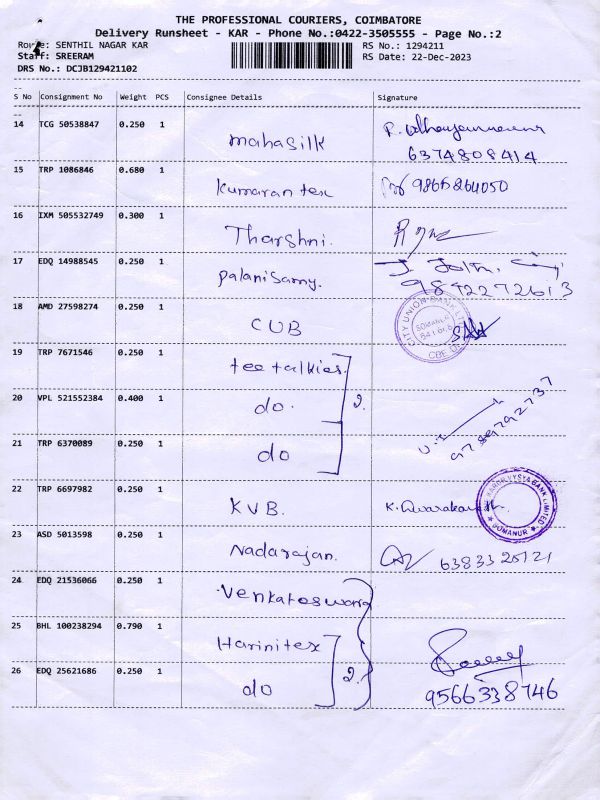 THE PROFESSIONAL COURIERS, COIMBATORE
Delivery Runsheet - KAR - Phone No.:0422-3505555 - Page No.:2
Route: SENTHIL NAGAR KAR RS No.: 1294211
Staff: SREERAM RS Date: 22-Dec-2023
DRS No.: DCJB129421102
S No Consignment No Weight PCS Consignee Details Signature
14 TCG 50538847 0.250 1 mahasilk
6374808414
15 TRP 1086846 0.680 1 kumaran tex 9865264050
16 IXM 505532749 0.300 1 Tharshni.
17 EDQ 14988545 0.250 1 palanisamy. J.
9842272613
18 AMD 27598274 0.250 1 CUB
CITY UNION BANK LTD
SOMANUR
641 668
CBE DT
19 TRP 7671546 0.250 1 tee talkies.
20 VPL 521552384 0.400 1 do. 2.
9789792737
21 TRP 6370089 0.250 1 do
22 TRP 6697982 0.250 1 KVB. K.
KARUR VYSYA BANK LIMITED
SOMANUR
23 ASD 5013598 0.250 1 Nadarajan.
24 EDQ 21536066 0.250 1 Venkateswara
25 BHL 100238294 0.790 1 Harinitex
26 EDQ 25621686 0.250 1 do 2.
9566338746